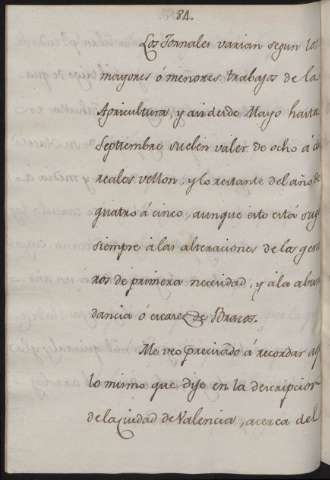 84.
Los Jornales varian segun los
mayores ó menores trabajos de la
Agricultura, y asi desde Mayo hasta
Septiembre suelen valer de ocho á
reales vellon, y lo restante del año de
quatro á cinco, aunque esto está
siempre á las alteraciones de los gene
ros de primera necesidad, y á la abun
dancia ó escasez de Brazos.
Me veo precisado á recordar aq
lo mismo que dije en la descripcion
de la Ciudad de Valencia, acerca del